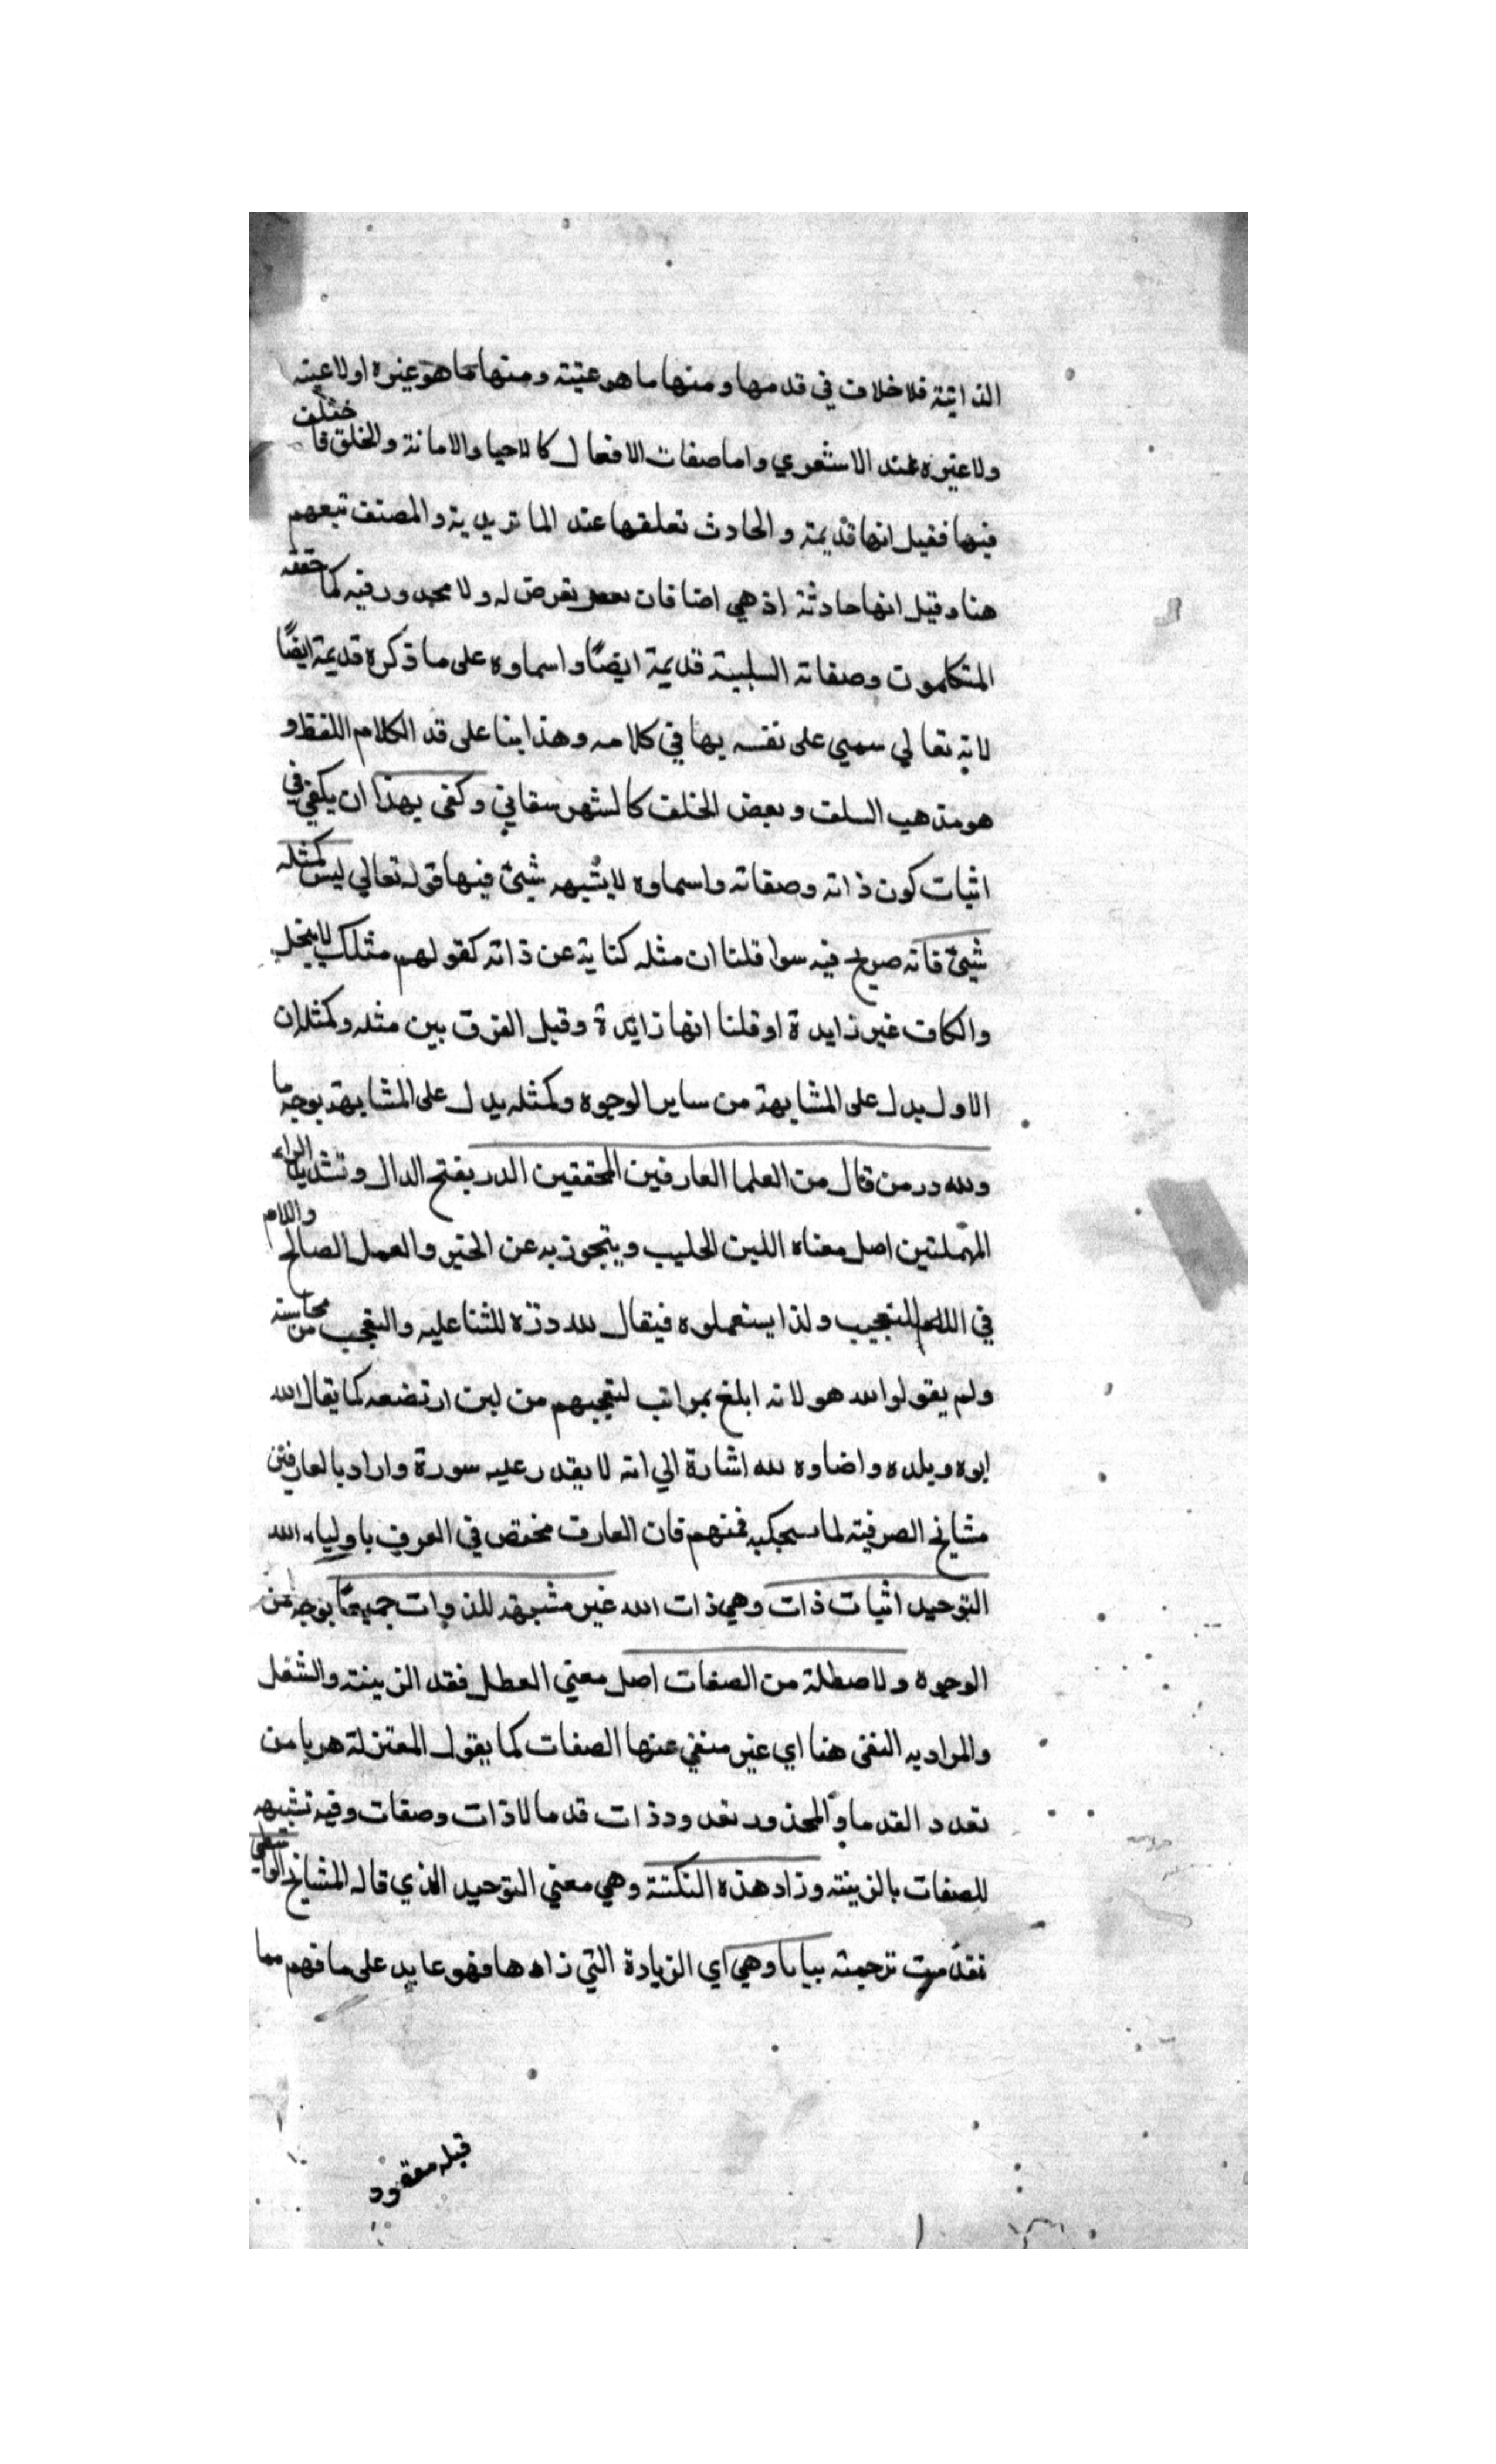 الذاتية فلا خلاف في قدمها ومنها ما هو عينه ومنها ما هو غيره او لا عينه
ولا غيره عند الاشعري واما صفات الافعال كالاحيا والاماتة والخلق فاختلف
فيها فقيل انها قديمة والحادث تعلقها عند الماتريدية والمصنف تبعهم
هنا وقيل انها حادثة اذ هي اضافات تعرض له ولا محدور فيه كما حققه
المتكلمون وصفاته السلبية قديمة ايضًا واسماوه على ما ذكره قديمة ايضًا
لانه تعالي سمي على نفسه بها في كلامه وهذا بنا على قد الكلام اللفظ و
هو مذهب السلف وبعض الخلف كالشهرستاني وكفى بهذا ان يكفي في
اثبات كون ذاته وصفاته واسماوه لا يشبهه شيئ فيها قوله تعالي ليس كمثله
شيئ فانه صريح فيه سوا قلنا ان مثله كناية عن ذاته كقولهم مثلك لا يبخل
والكاف غير زايدة او قلنا انها زايدة وقيل الفرق بين مثله وكمثله ان
الاول يدل على المشابهة من ساير الوجوه وكمثله يدل على المشابهة بوجه ما
ولله در من قال من العلما العارفين المحققين الدر بفتح الدال وتشديد الراء
المهملتين اصل معناه اللبن الحليب ويتجوز به عن الخير والعمل الصالح واللام
في الله للتعجيب ولذا يستعملوه فيقال لله دره للثنا عليه والتعجب من محاسنه
ولم يقولوا لله هو لانه ابلغ بمراتب لتعجبهم من لبن ارتضعه كما يقال لله
ابوه ويلده واضاوه لله اشارة الي انه لا يقدر عليه سورة واراد بالعارفين
مشايخ الصوفية لما سيحكيه فمنهم فان العارف مختص في العرف باولياء الله
التوحيد اثبات ذات وهي ذات الله غير مشبهة للذوات جميعًا بوجه من
الوجوه ولا معطلة من الصفات اصل معني العطل فقد الزينة والشغل
والمراد به النفى هنا اي غير منفي عنها الصفات كما يقول المعتزلة هربا من
تعدد القدما والمحذور تعدد ذات قدما لا ذات وصفات وفيه تشبيه
للصفات بالزينة وزاد هذه النكتة وهي معني التوحيد الذي قاله المشايخ الواسطي
تقدمت ترجمته بيانا وهي اي الزيادة التي زادها فهو عايد على ما فهم مما
قبله مفقود